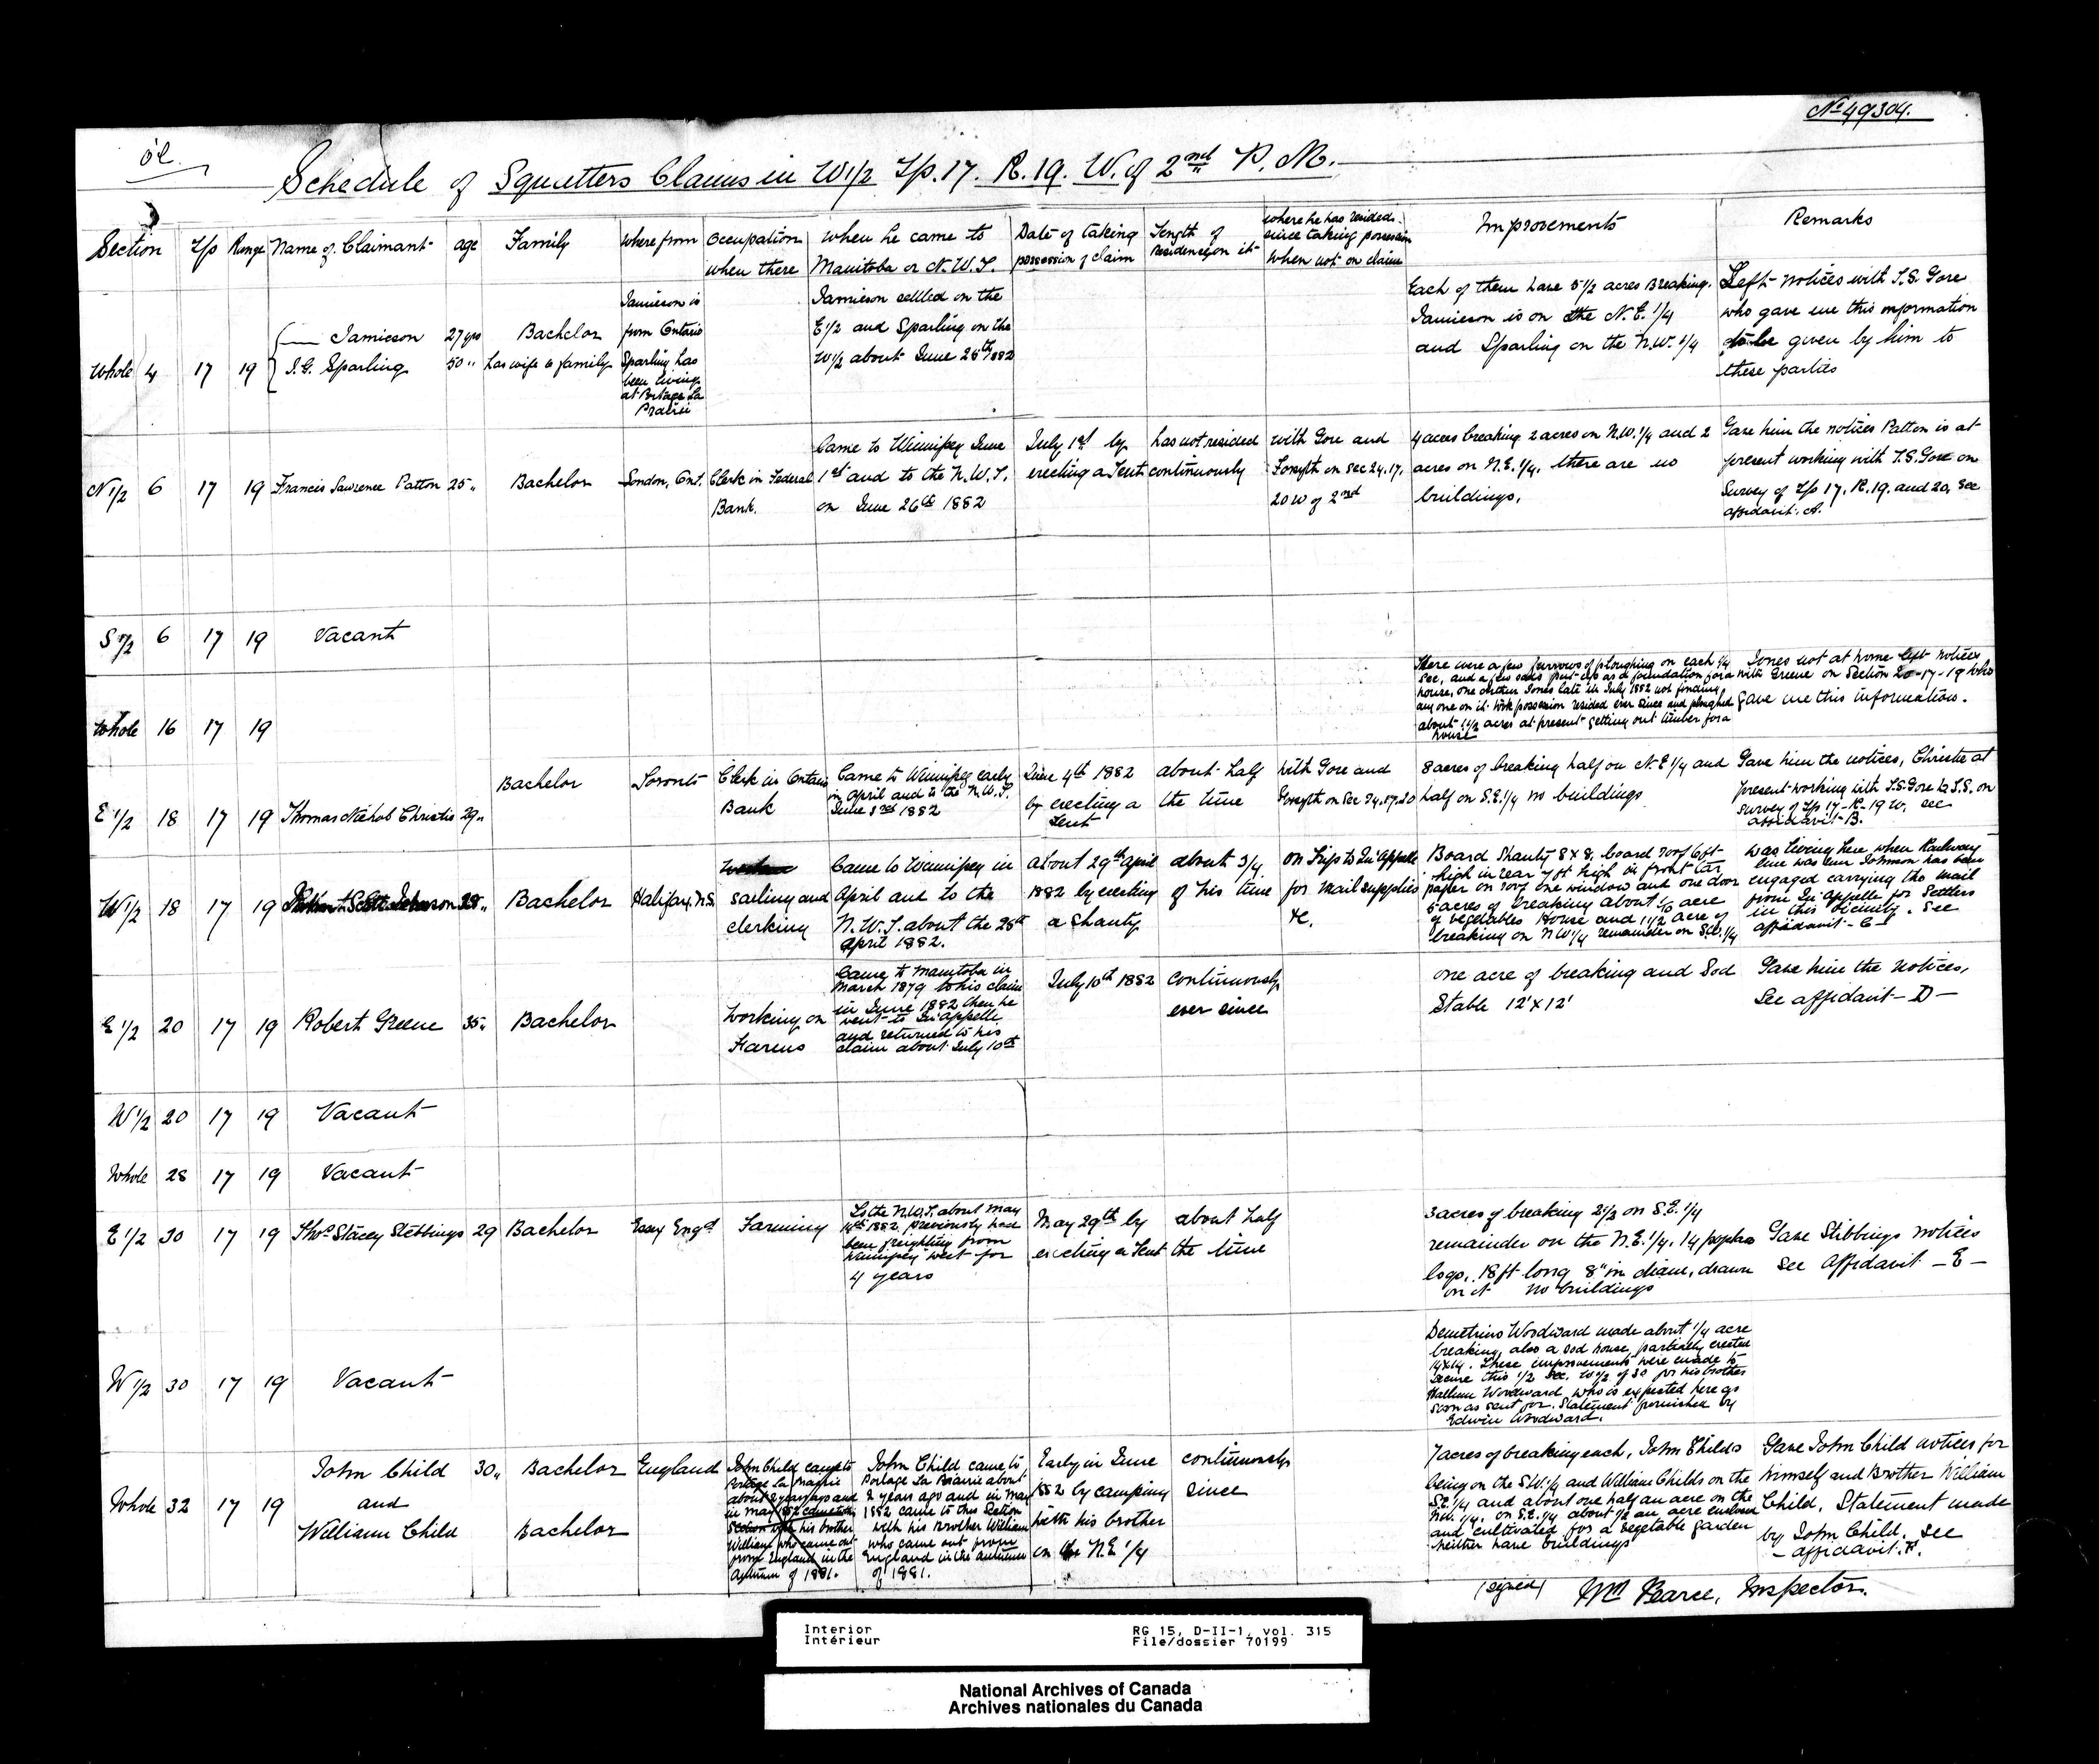 No 49304.
Schedule of Squatters Claims in W1/2 Tp. 17. R. 19. W. of 2nd P. M.
Section
T/p
Range
Name of Claimant
age
Family
Where from
Occupation
when there
When he came to
Manitoba or N. W. T.
Date of taking
possession of claim
Length of
residence on it
where he has resided
since taking possession
when not on claim
Improvements
Remarks
Whole 4 17 19
Jamieson
S. G. Sparling
27 yrs
50 "
Bachelor
has wife & family
Jamieson is
from Ontario
Sparling has
been living
at Portage La
Prairie
Jamieson settled on the
E1/2 and Sparling on the
W1/2 about June 25th 1882
Each of them have 5 1/2 acres Breaking.
Jamieson is on the N. E. 1/4
and Sparling on the N.W. 1/4
Left notices with T.S. Gore
who gave me this information
to be given by him to
these parties
N 1/2 6 17 19
Francis Lawrence Patton
25 "
Bachelor
London, Ont.
Clerk in Federal
Bank.
Came to Winnipeg June
1st and to the N. W. T.
on June 26th 1882
July 1st by
erecting a Tent
has not resided
continuously
with Gore and
Forsyth on Sec 24. 17.
20 W of 2nd
4 acres breaking 2 acres on N.W. 1/4 and 2
acres on N. E. 1/4. there are no
buildings.
Gave him the notices Patton is at
present working with T.S. Gore on
Survey of T/p 17. R. 19. and 20, see
affidavit. A.
S 1/2 6 17 19
Vacant
Whole 16 17 19
There were a few furrows of ploughing on each 1/4
Sec, and a few sods put up as a foundation for a
house, one Arthur Jones late in July 1882 not finding
any one on it took possession resided ever since and ploughed
about 1 1/2 acres at present getting out timber for a
house
Jones not at home left notices
with Greene on Section 20-17-19 who
gave me this information.
E 1/2 18 17 19
Thomas Nichol Christie
29 "
Bachelor
Toronto
Clerk in Ontario
Bank
Came to Winnipeg early
in April and to the N. W. T.
June 3rd 1882
June 4th 1882
by erecting a
Tent
about half
the time
with Gore and
Forsyth on Sec 24. 17. 20
8 acres of breaking half on N. E 1/4 and
half on S. E. 1/4 no buildings
Gave him the notices, Christie at
present working with T.S. Gore D.L.S. on
survey of T/p 17 - R - 19 W, see
affidavit - B.
W 1/2 18 17 19
Scott Johnson
28 "
Bachelor
Halifax, N.S.
sailing and
clerking
Came to Winnipeg in
April and to the
N. W. T. about the 28th
April 1882.
about 29th April
1882 by erecting
a Shanty
about 3/4
of his time
on Trips to Qu'Appelle
for mail supplies
&c.
Board Shanty 8 x 8. board roof 6 ft
high in rear 7 ft high in front tar
paper on roof one window and one door
5 acres of breaking about 1/8 acre
of vegetables House and 1 1/2 acre of
breaking on N W 1/4 remainder on S.W. 1/4
was living here when Railway
line was run Johnson has been
engaged carrying the mail
from Qu'Appelle for Settlers
in this vicinity. See
affidavit - C -
E 1/2 20 17 19
Robert Greene
35 "
Bachelor
working on
Farms
Came to Manitoba in
March 1879 to his claim
in June 1882 then he
went to Qu'Appelle
and returned to his
claim about July 10th
July 10th 1882
continuously
ever since
one acre of breaking and Sod
Stable 12' X 12'
Gave him the notices,
See affidavit - D -
W 1/2 20 17 19
Vacant
Whole 28 17 19
Vacant
E 1/2 30 17 19
Thos Stacey Stebbings
29
Bachelor
Essex Engd
Farming
To the N.W.T. about May
14th 1882. previously had
been freighting from
Winnipeg west for
4 years
May 29th by
erecting a Tent
about half
the time
3 acres of breaking 2 1/2 on S. E. 1/4
remainder on the N. E. 1/4. 14 poplar
logs, 18 ft long 8" in diam, drawn
on it no buildings
Gave Stibbings notices
See Affidavit - E -
W 1/2 30 17 19
Vacant
Demetrius Woodward made about 1/4 acre
breaking, also a sod house, partially erected
14x14. These improvements were made to
secure this 1/2 Sec. W1/2 of 30 for his brother
Woodward, who is expected here as
soon as sent for. Statement furnished by
Edwin Woodward.
Whole 32 17 19
John Child
and
William Child
30 "
Bachelor
Bachelor
England
John Child came to
Portage La Prairie
about 2 years ago and
in May 1882 came to this
Section with his brother
William who came out
from England in the
Autumn of 1881.
John Child came to
Portage La Prairie about
2 years ago and in May
1882 came to this Section
with his Brother William
who came out from
England in the Autumn
of 1881.
Early in June
1882 by camping
with his brother
on the N. E 1/4
continuously
since
7 acres of breaking each, John Childs
being on the S.W. 1/4 and William Childs on the
S.E. 1/4 and about one half an acre on the
N.W. 1/4. on S.E. 1/4 about 1/2 an acre enclosed
and cultivated for a vegetable garden
neither have buildings
Gave John Child notices for
himself and Brother William
Child. Statement made
by John Child. see
- affidavit. F.
(signed) Wm Pearce, Inspector.
Interior
Intérieur
RG 15, D-II-1, vol. 315
File/dossier 70199
National Archives of Canada
Archives nationales du Canada